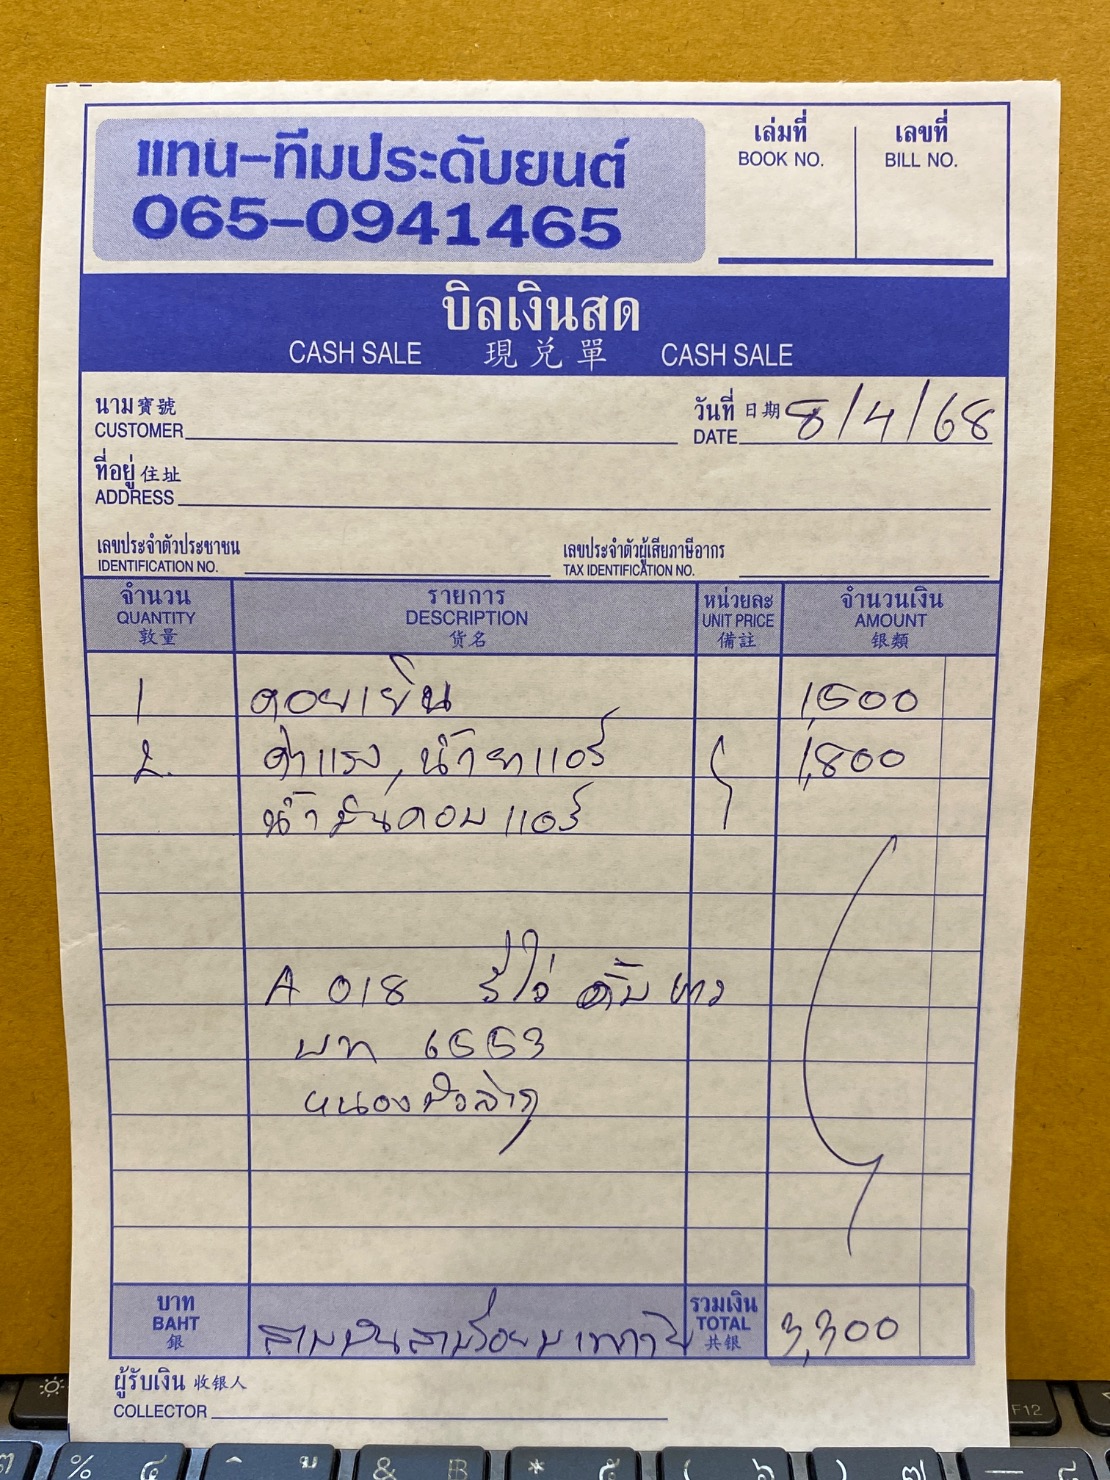 แทน-ทีมประดับยนต์
065-0941465
เล่มที่
BOOK NO.
เลขที่
BILL NO.
บิลเงินสด
CASH SALE 現兑單 CASH SALE
นาม 寶號
CUSTOMER
วันที่ 日期 8/4/68
DATE
ที่อยู่ 住址
ADDRESS
เลขประจำตัวประชาชน
IDENTIFICATION NO.
เลขประจำตัวผู้เสียภาษีอากร
TAX IDENTIFICATION NO.
จำนวน
QUANTITY
敦量
รายการ
DESCRIPTION
货名
หน่วยละ
UNIT PRICE
備註
จำนวนเงิน
AMOUNT
银類
1 คอยเย็น 1,500
2. ค่าแรง, น้ำยาแอร์ 1,800
น้ำมันคอมแอร์
A 018 รีโว่
บท 6553
หนองบัวลำภู
บาท
BAHT
銀
สามพันสามร้อยบาท
รวมเงิน
TOTAL
共银
3,300
ผู้รับเงิน 收银人
COLLECTOR
F12
% ๔
& ฿
* ๕
( ๖
) ๗